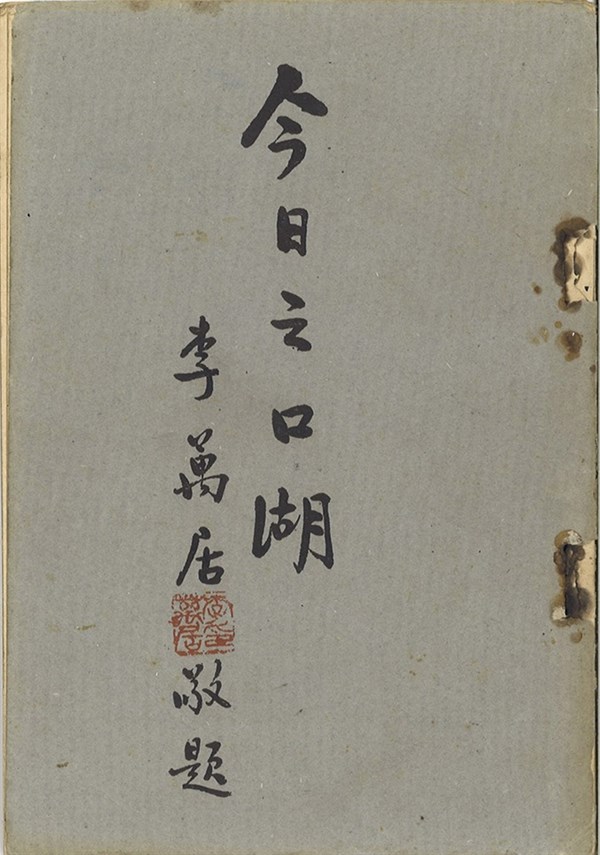 今日之口湖
李萬居敬題